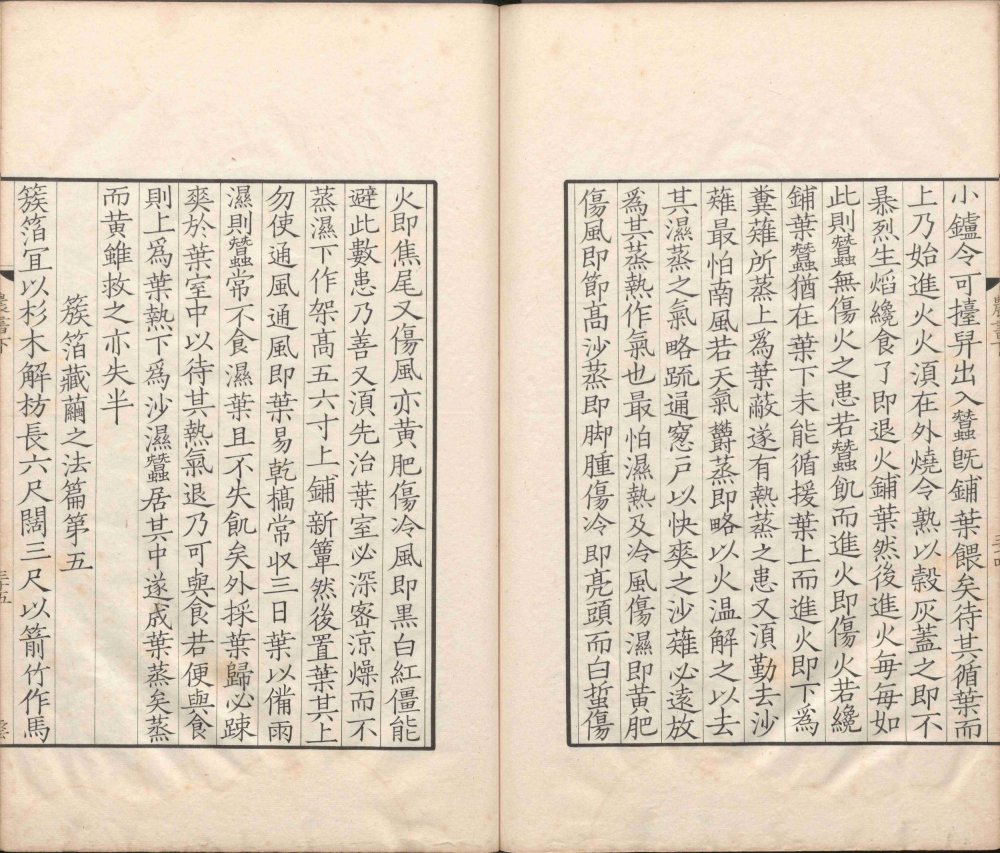 小鑪令可擡舁出入蠶旣鋪葉餵矣待其循葉而
上乃始進火火湏在外燒令熟以穀灰蓋之即不
暴烈生熖纔食了即退火鋪葉然後進火每每如
此則蠶無傷火之患若蠶飢而進火即傷火若纔
鋪葉蠶猶在葉下未能循援葉上而進火即下爲
糞薙所蒸上爲葉蔽遂有熱蒸之患又湏勤去沙
薙最怕南風若天氣鬱蒸即略以火温解之以去
其濕蒸之氣略䟽通窻戸以快爽之沙薙必遠放
爲其蒸熱作氣也最怕濕熱及冷風傷濕即黄肥
傷風即節髙沙蒸即脚腫傷冷即亮頭而白蜇傷
火即焦尾又傷風亦黄肥傷冷風即黑白紅僵能
避此數患乃善又湏先治葉室必深密涼燥而不
蒸濕下作架髙五六寸上鋪新簟然後置葉其上
勿使通風通風即葉易乾槁常收三日葉以備雨
濕則蠶常不食濕葉且不失飢矣外採葉歸必踈
爽於葉室中以待其熱氣退乃可與食若便與食
則上爲葉熱下爲沙濕蠶居其中遂成葉蒸矣蒸
而黄雖救之亦失半
簇箔藏繭之法篇第五
簇箔冝以杉木解枋長六尺闊三尺以箭竹作馬